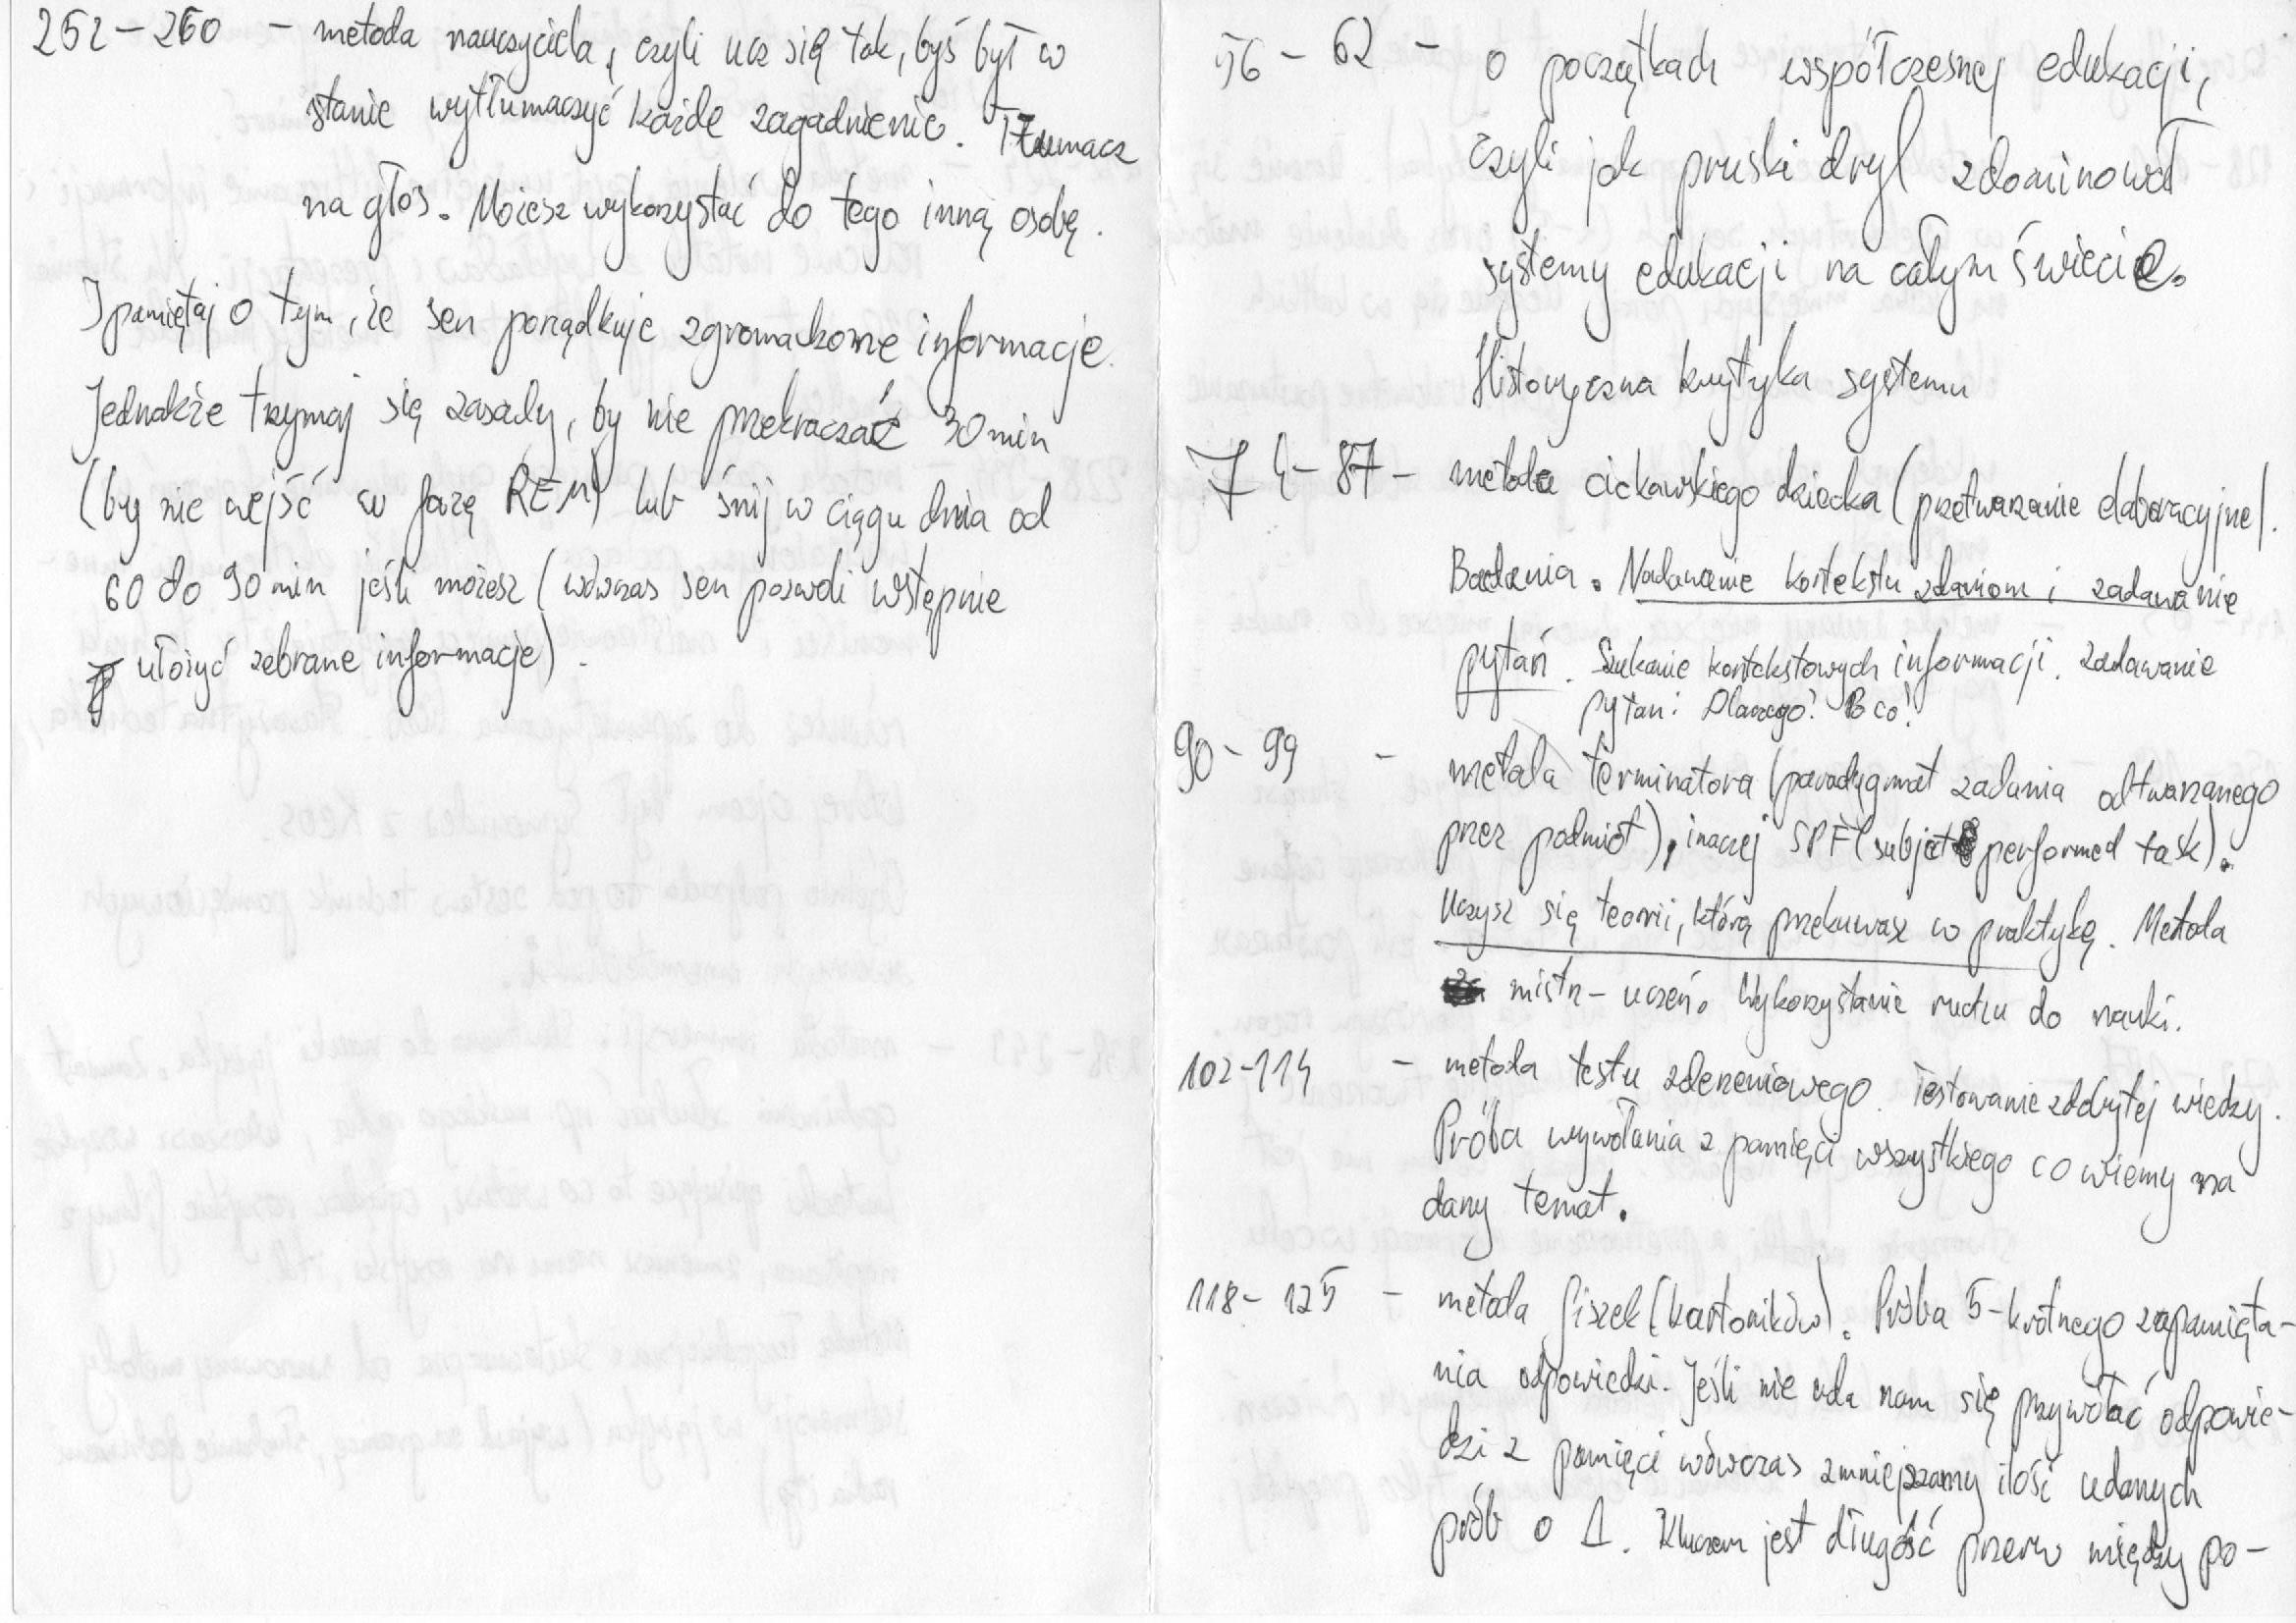 252-260 - metoda nauczyciela, czyli ucz się tak, byś był w
stanie wytłumaczyć każde zagadnienie. Tłumacz
na głos. Możesz wykorzystać do tego inną osobę.
I pamiętaj o tym, że sen porządkuje zgromadzone informacje.
Jednakże trzymaj się zasady, by nie przekraczać 30 min
(by nie wejść w fazę REM) lub śnij w ciągu dnia od
60 do 90 min jeśli możesz (wówczas sen pozwoli wstępnie
ułożyć zebrane informacje).
56-62 - o początkach współczesnej edukacji,
czyli jak pruski dryl zdominował
systemy edukacji na całym świecie.
Historyczna krytyka systemu
74-87 - metoda ciekawskiego dziecka (przetwarzanie elaboracyjne).
Badania. Nadawanie kontekstu zdaniom i zadawanie
pytań. Szukanie kontekstowych informacji. Zadawanie
pytań: Dlaczego? Po co?
90-99 - metoda terminatora (paradygmat zadania odtwarzanego
przez podmiot), inaczej SPT (subject performed task).
Uczysz się teorii, którą przekuwasz w praktykę. Metoda
mistrz-uczeń. Wykorzystanie ruchu do nauki.
102-114 - metoda testu zderzeniowego. Testowanie zdobytej wiedzy.
Próba wywołania z pamięci wszystkiego co wiemy na
dany temat.
118-125 - metoda fiszek (kartoników). Próba 5-krotnego zapamięta-
nia odpowiedzi. Jeśli nie uda nam się przywołać odpowie-
dzi z pamięci wówczas zmniejszamy ilość udanych
prób o 1. Kluczem jest długość przerw między po-